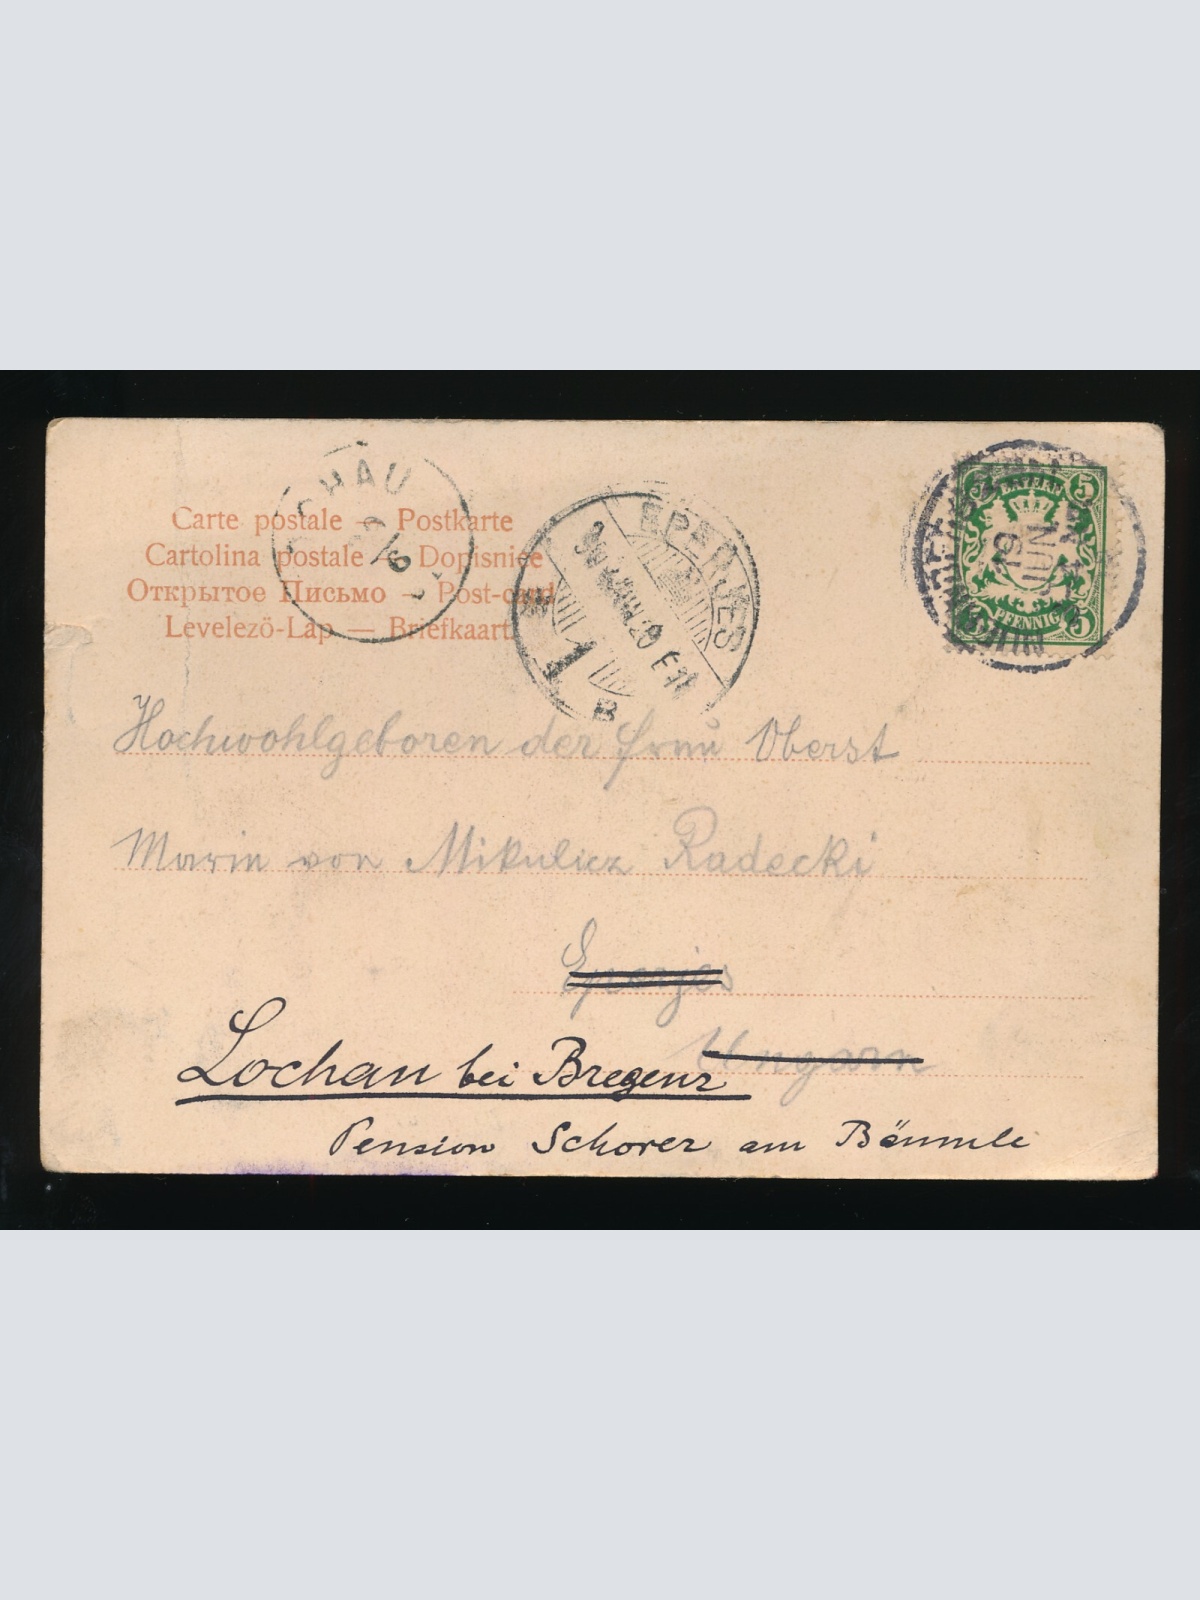 Carte postale — Postkarte
Cartolina postale — Dopisnice
Открытое Письмо — Post-card
Levelezö-Lap — Briefkaart
EPERJES
B
BAYERN
5 5
PFENNIG
5 5
19 JUN
Hochwohlgeboren der Frau Oberst
Marie von Mikulicz Radecki
Eperjes
Ungarn
Lochau bei Bregenz
Pension Schorer am Bäumle